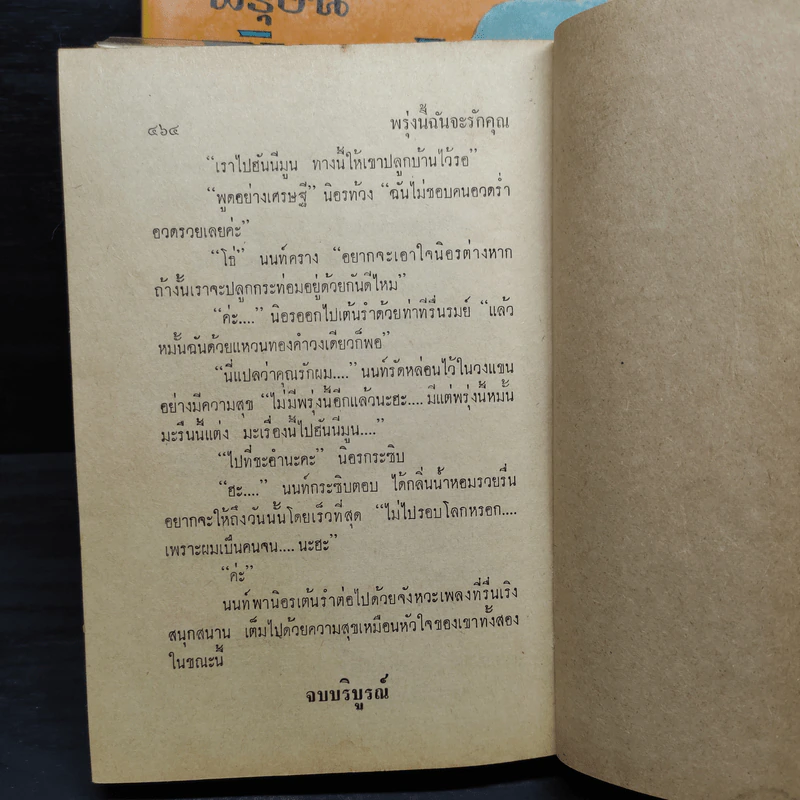 พรุ่งนี้
๔๖๔ พรุ่งนี้ฉันจะรักคุณ
“เราไปฮันนีมูน ทางนี้ให้เขาปลูกบ้านไว้รอ”
“พูดอย่างเศรษฐี” นิอรท้วง “ฉันไม่ชอบคนอวดร่ำ
อวดรวยเลยค่ะ”
“โธ่” นนท์คราง “อยากจะเอาใจนิอรต่างหาก
ถ้างั้นเราจะปลูกกระท่อมอยู่ด้วยกันดีไหม”
“ค่ะ....” นิอรออกไปเต้นรำด้วยท่าทีรื่นรมย์ “แล้ว
หมั้นฉันด้วยแหวนทองคำวงเดียวก็พอ”
“นี่แปลว่าคุณรักผม....” นนท์รัดหล่อนไว้ในวงแขน
อย่างมีความสุข “ไม่มีพรุ่งนี้อีกแล้วนะฮะ.... มีแต่พรุ่งนี้หมั้น
มะรืนนี้แต่ง มะเรื่องนี้ไปฮันนีมูน....”
“ไปที่ชะอำนะคะ” นิอรกระซิบ
“ฮะ....” นนท์กระซิบตอบ ได้กลิ่นน้ำหอมรวยรื่น
อยากจะให้ถึงวันนั้นโดยเร็วที่สุด “ไม่ไปรอบโลกหรอก....
เพราะผมเป็นคนจน.... นะฮะ”
“ค่ะ”
นนท์พานิอรเต้นรำต่อไปด้วยจังหวะเพลงที่รื่นเริง
สนุกสนาน เต็มไปด้วยความสุขเหมือนหัวใจของเขาทั้งสอง
ในขณะนี้
จบบริบูรณ์